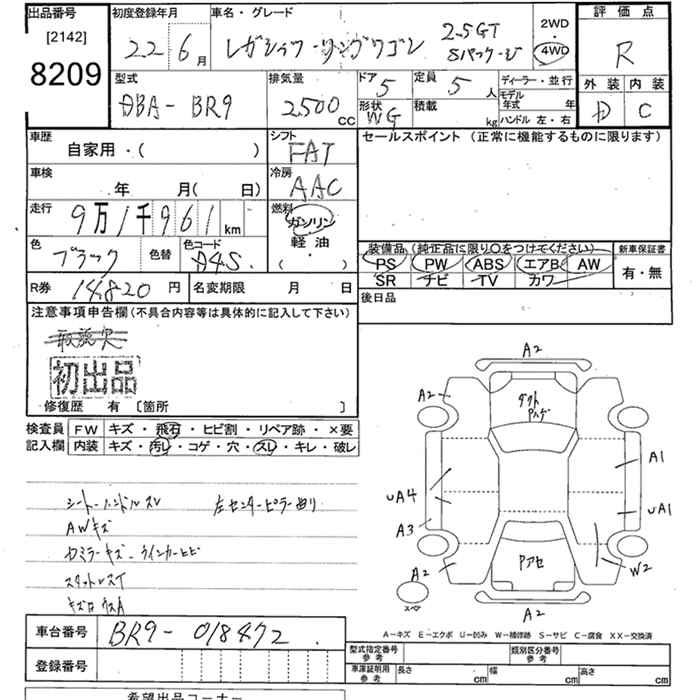 出品番号 [2142] 8209
初度登録年月 22年6月
車名・グレード レガシィツーリングワゴン 2.5GT Sパッケージ
2WD・4WD
評価点 R
外装 D 内装 C
型式 DBA-BR9
排気量 2500 CC
ドア 5
形状 WG
定員 5人
積載 kg
ディーラー・並行
モデル年式 年
ハンドル 左・右
車歴 自家用・( )
シフト FAT
セールスポイント (正常に機能するものに限ります)
車検 年 月( 日)
冷房 AAC
走行 9万1千961 km
燃料 ガソリン 軽油・( )
色 ブラック 色替
色コード A4S
装備品(純正品に限り○をつけてください)
PS PW ABS エアB AW
SR ナビ TV カワ
新車保証書 有・無
R券 14820円
名変期限 月 日
後日品
注意事項申告欄(不具合内容等は具体的に記入して下さい)
取説欠
初出品
修復歴 有 [箇所 ]
検査員記入欄 FW キズ・飛石・ヒビ割・リペア跡・×要
内装 キズ・汚レ・コゲ・穴・スレ・キレ・破レ
シートハンドルスレ 左センターピラー曲り
AWキズ
ドミラーキズ・ウインカーヒビ
スタットレスT
A2
A2
ダクト
A1
UA4
UA1
A3
A2
Pアセ
W2
スペア
A2
A-キズ E-エクボ U-凹み W-補修跡 S-サビ C-腐食 XX-交換済
車台番号 BR9-018472
登録番号
型式指定番号 参考 類別区分番号 参考
車庫証明用 参考 長さ cm 幅 cm 高さ cm
希望出品コーナー